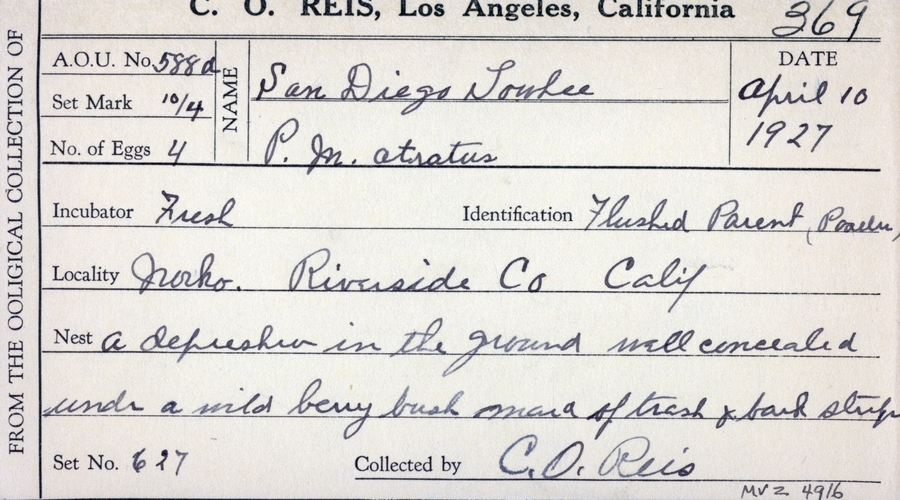 C. O. REIS, Los Angeles, California 369
FROM THE OOLIGICAL COLLECTION OF
A.O.U. No. 588d
Set Mark 10/4
No. of Eggs 4
NAME
San Diego Towhee
P. m. atratus
DATE
April 10
1927
Incubator Fresh Identification Flushed Parent
Locality Norko. Riverside Co Calif
Nest a depreshun in the ground well concealed
undr a wild berry bush mad of trash & bark strips
Set No. 627 Collected by C. O. Reis
MVZ 4916